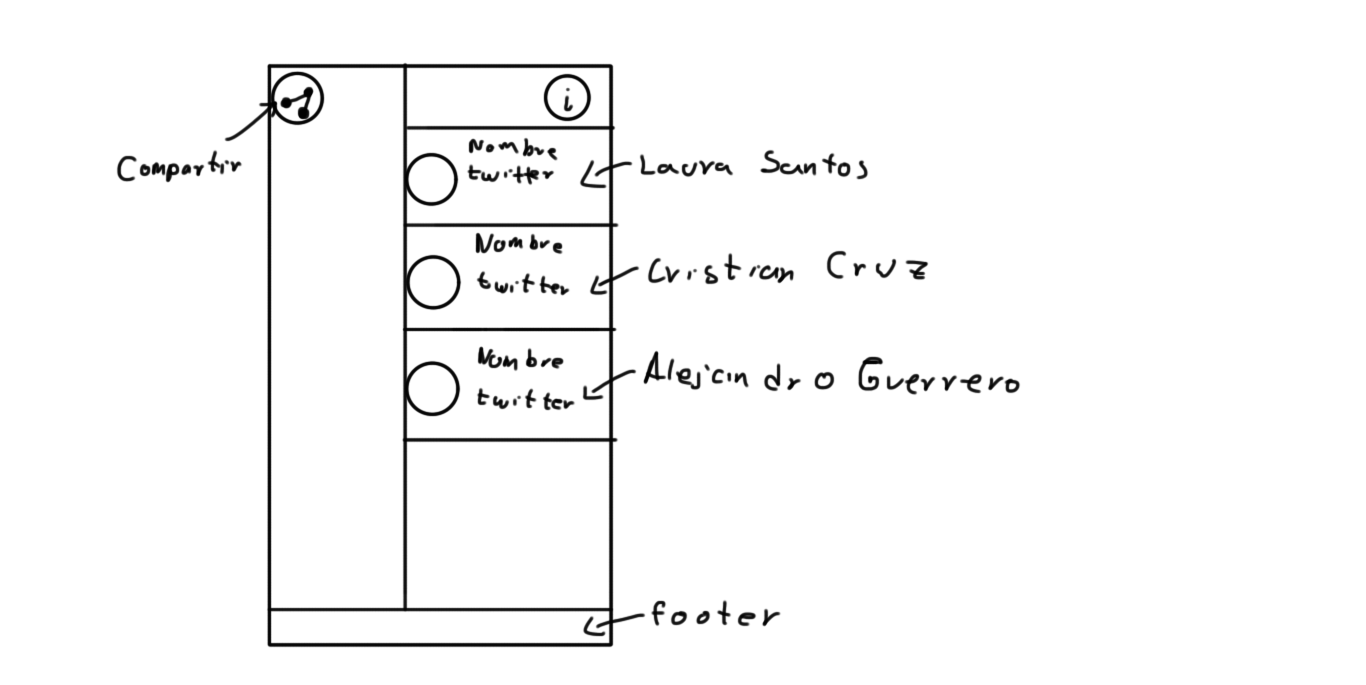 i
Compartir
Nombre
twitter
Laura Santos
Nombre
twitter
Cristian Cruz
Nombre
twitter
Alejandro Guerrero
footer